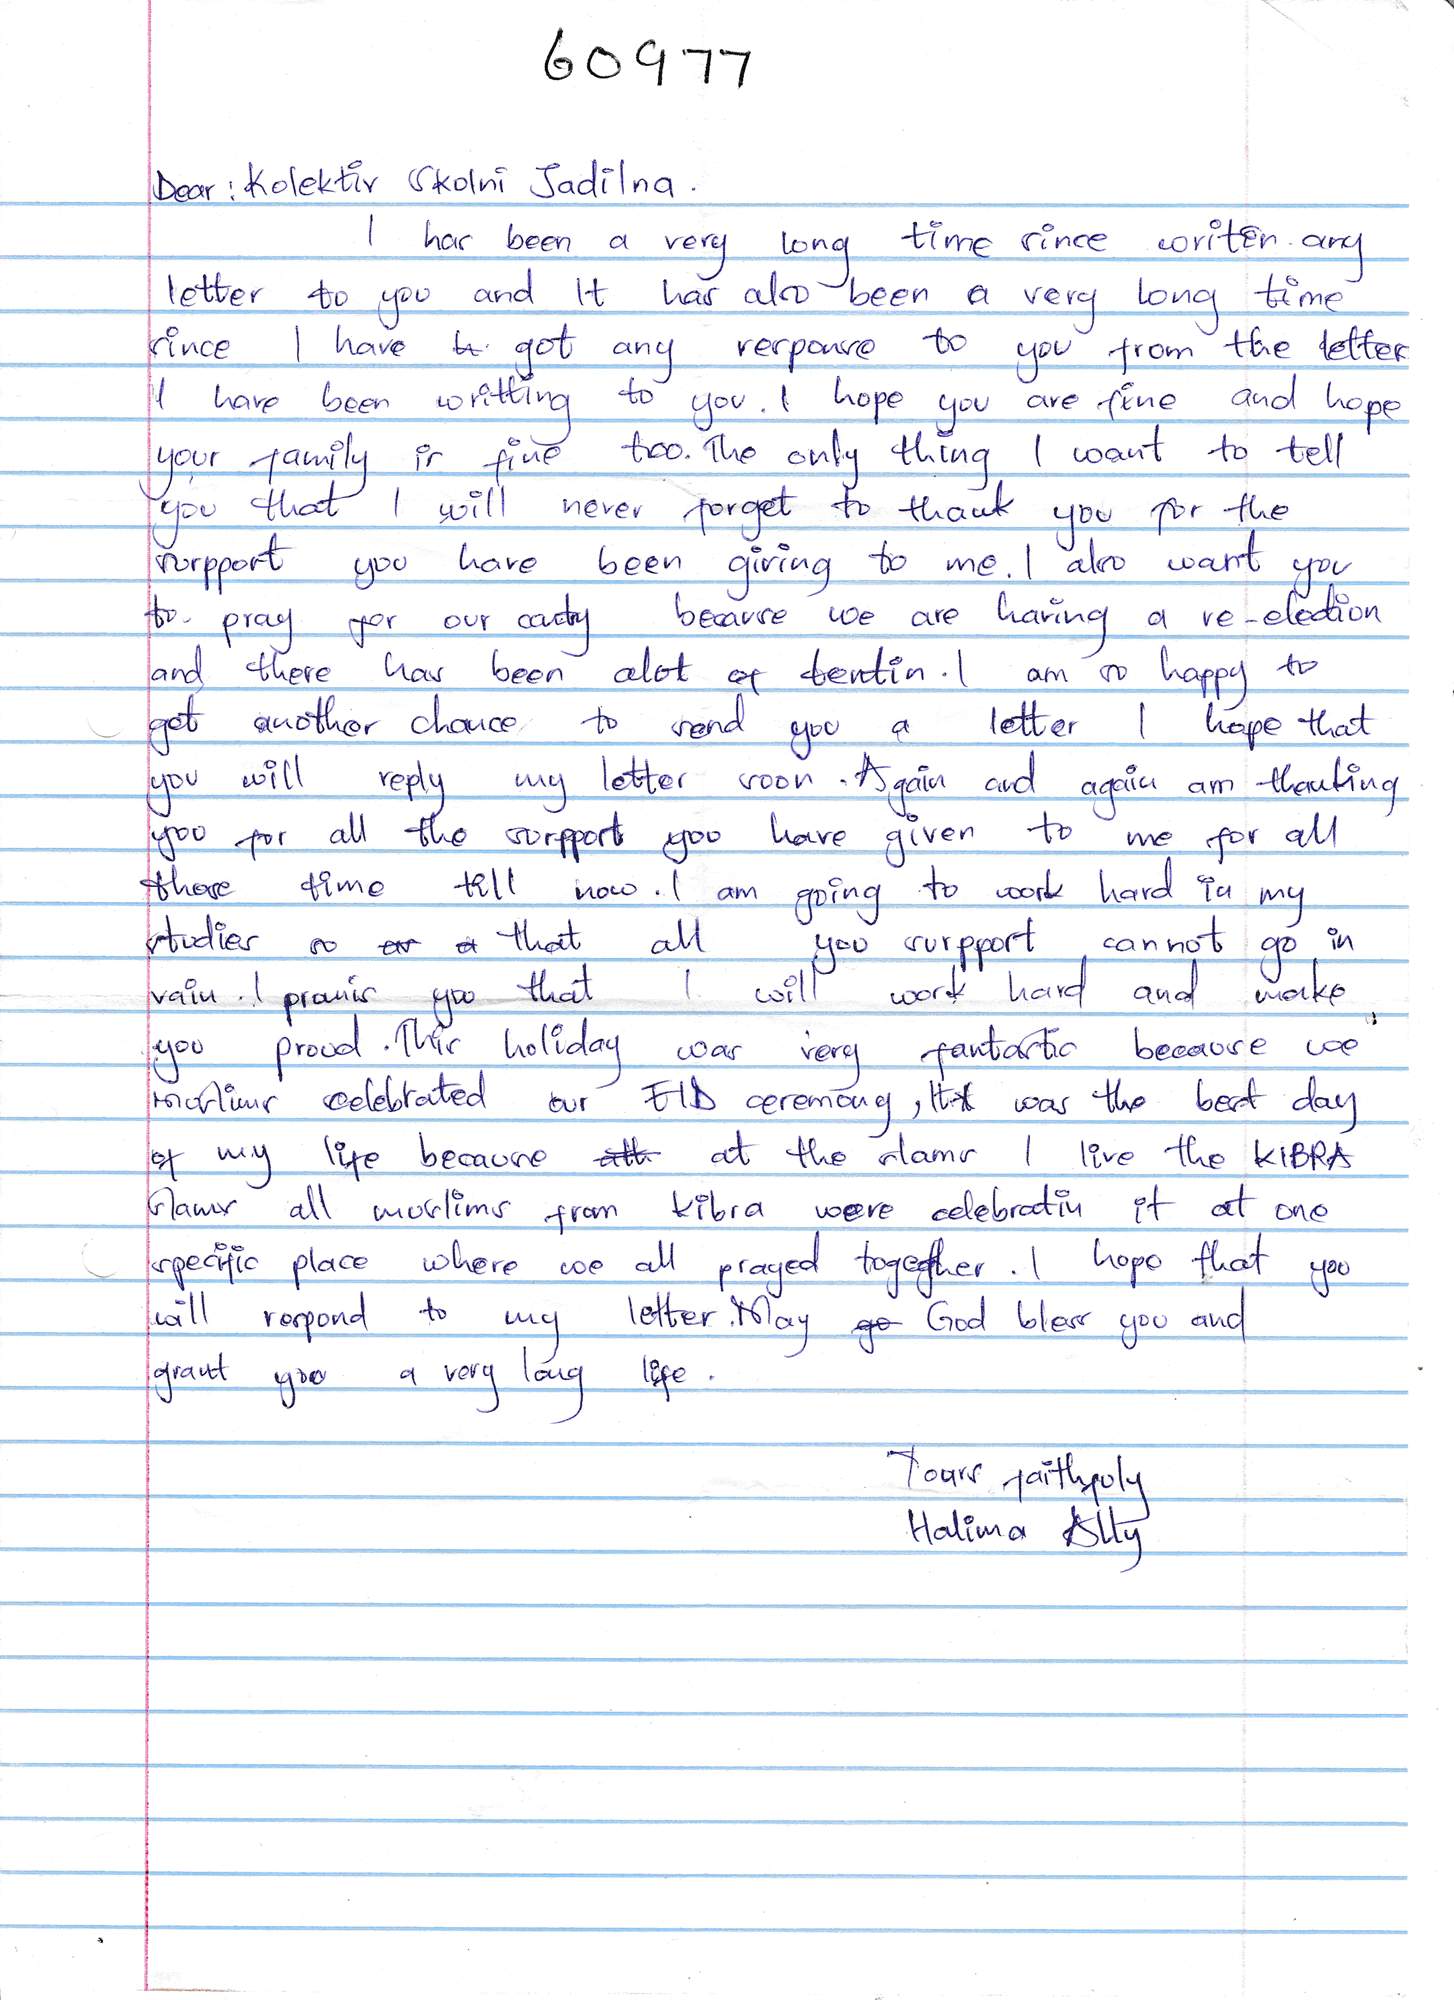 60977
Dear: Kolektiv Skolni Jadilna.
I has been a very long time since writen any
letter to you and It has also been a very long time
since I have got any response to you from the letter
I have been writting to you. I hope you are fine and hope
your family is fine too. The only thing I want to tell
you that I will never forget to thank you for the
surpport you have been giving to me. I also want you
to pray for our because we are having a re-election
and there has been alot of tentin. I am so happy to
get another chance to send you a letter I hope that
you will reply my letter soon. Again and again am thanking
you for all the surpport you have given to me for all
these time till now. I am going to work hard in my
studies so that all you surpport cannot go in
vain. I promis you that I will work hard and make
you proud. This holiday was very fantastic because we
moslims celebrated our EID ceremony, It was the best day
of my life because at the slams I live the KIBRA
slams all moslims from Kibra were celebratin it at one
specific place where we all prayed together. I hope that you
will respond to my letter. May God bless you and
grant you a very long life.
Yours faithfuly
Halima Ally